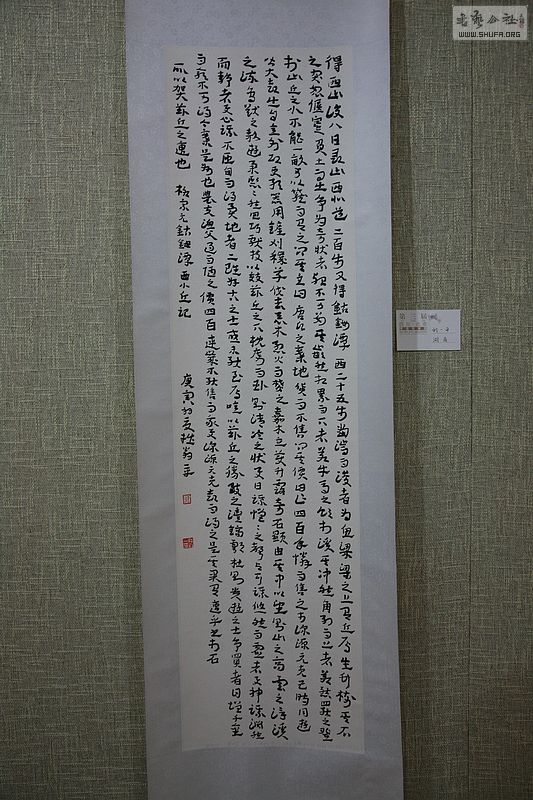 得西山後八日尋山西北道二百步又得鈷鉧潭西二十五步當湍而浚者為魚梁梁之上有丘焉生竹樹其石
之突怒偃蹇負土而出爭為奇狀者殆不可數其嶔然相累而下者若牛馬之飲於溪其沖然角列而上者若熊羆之登
於山丘之小不能一畝可以籠而有之問其主曰唐氏之棄地貨而不售問其價曰止四百余憐而售之李深源元克己時同遊
皆大喜出自意外即更取器用鏟刈穢草伐去惡木烈火而焚之嘉木立美竹露奇石顯由其中以望則山之高雲之浮溪
之流鳥獸之遨遊舉熙熙然迴巧獻技以效茲丘之下枕席而臥則清泠之狀與目謀瀯瀯之聲與耳謀悠然而虛者與神謀淵然
而靜者與心謀不匝旬而得異地者二雖古好事之士或未能至焉噫以茲丘之勝致之灃鎬鄠杜則貴遊之士爭買者日增千金
而愈不可得今棄是州也農夫漁父過而陋之價四百連歲不能售而我與深源克己獨喜得之是其果有遭乎書於石
所以賀茲丘之遭也 柳宗元鈷鉧潭西小丘記
庚寅初夏
第三届
書法公社
WWW.SHUFA.ORG